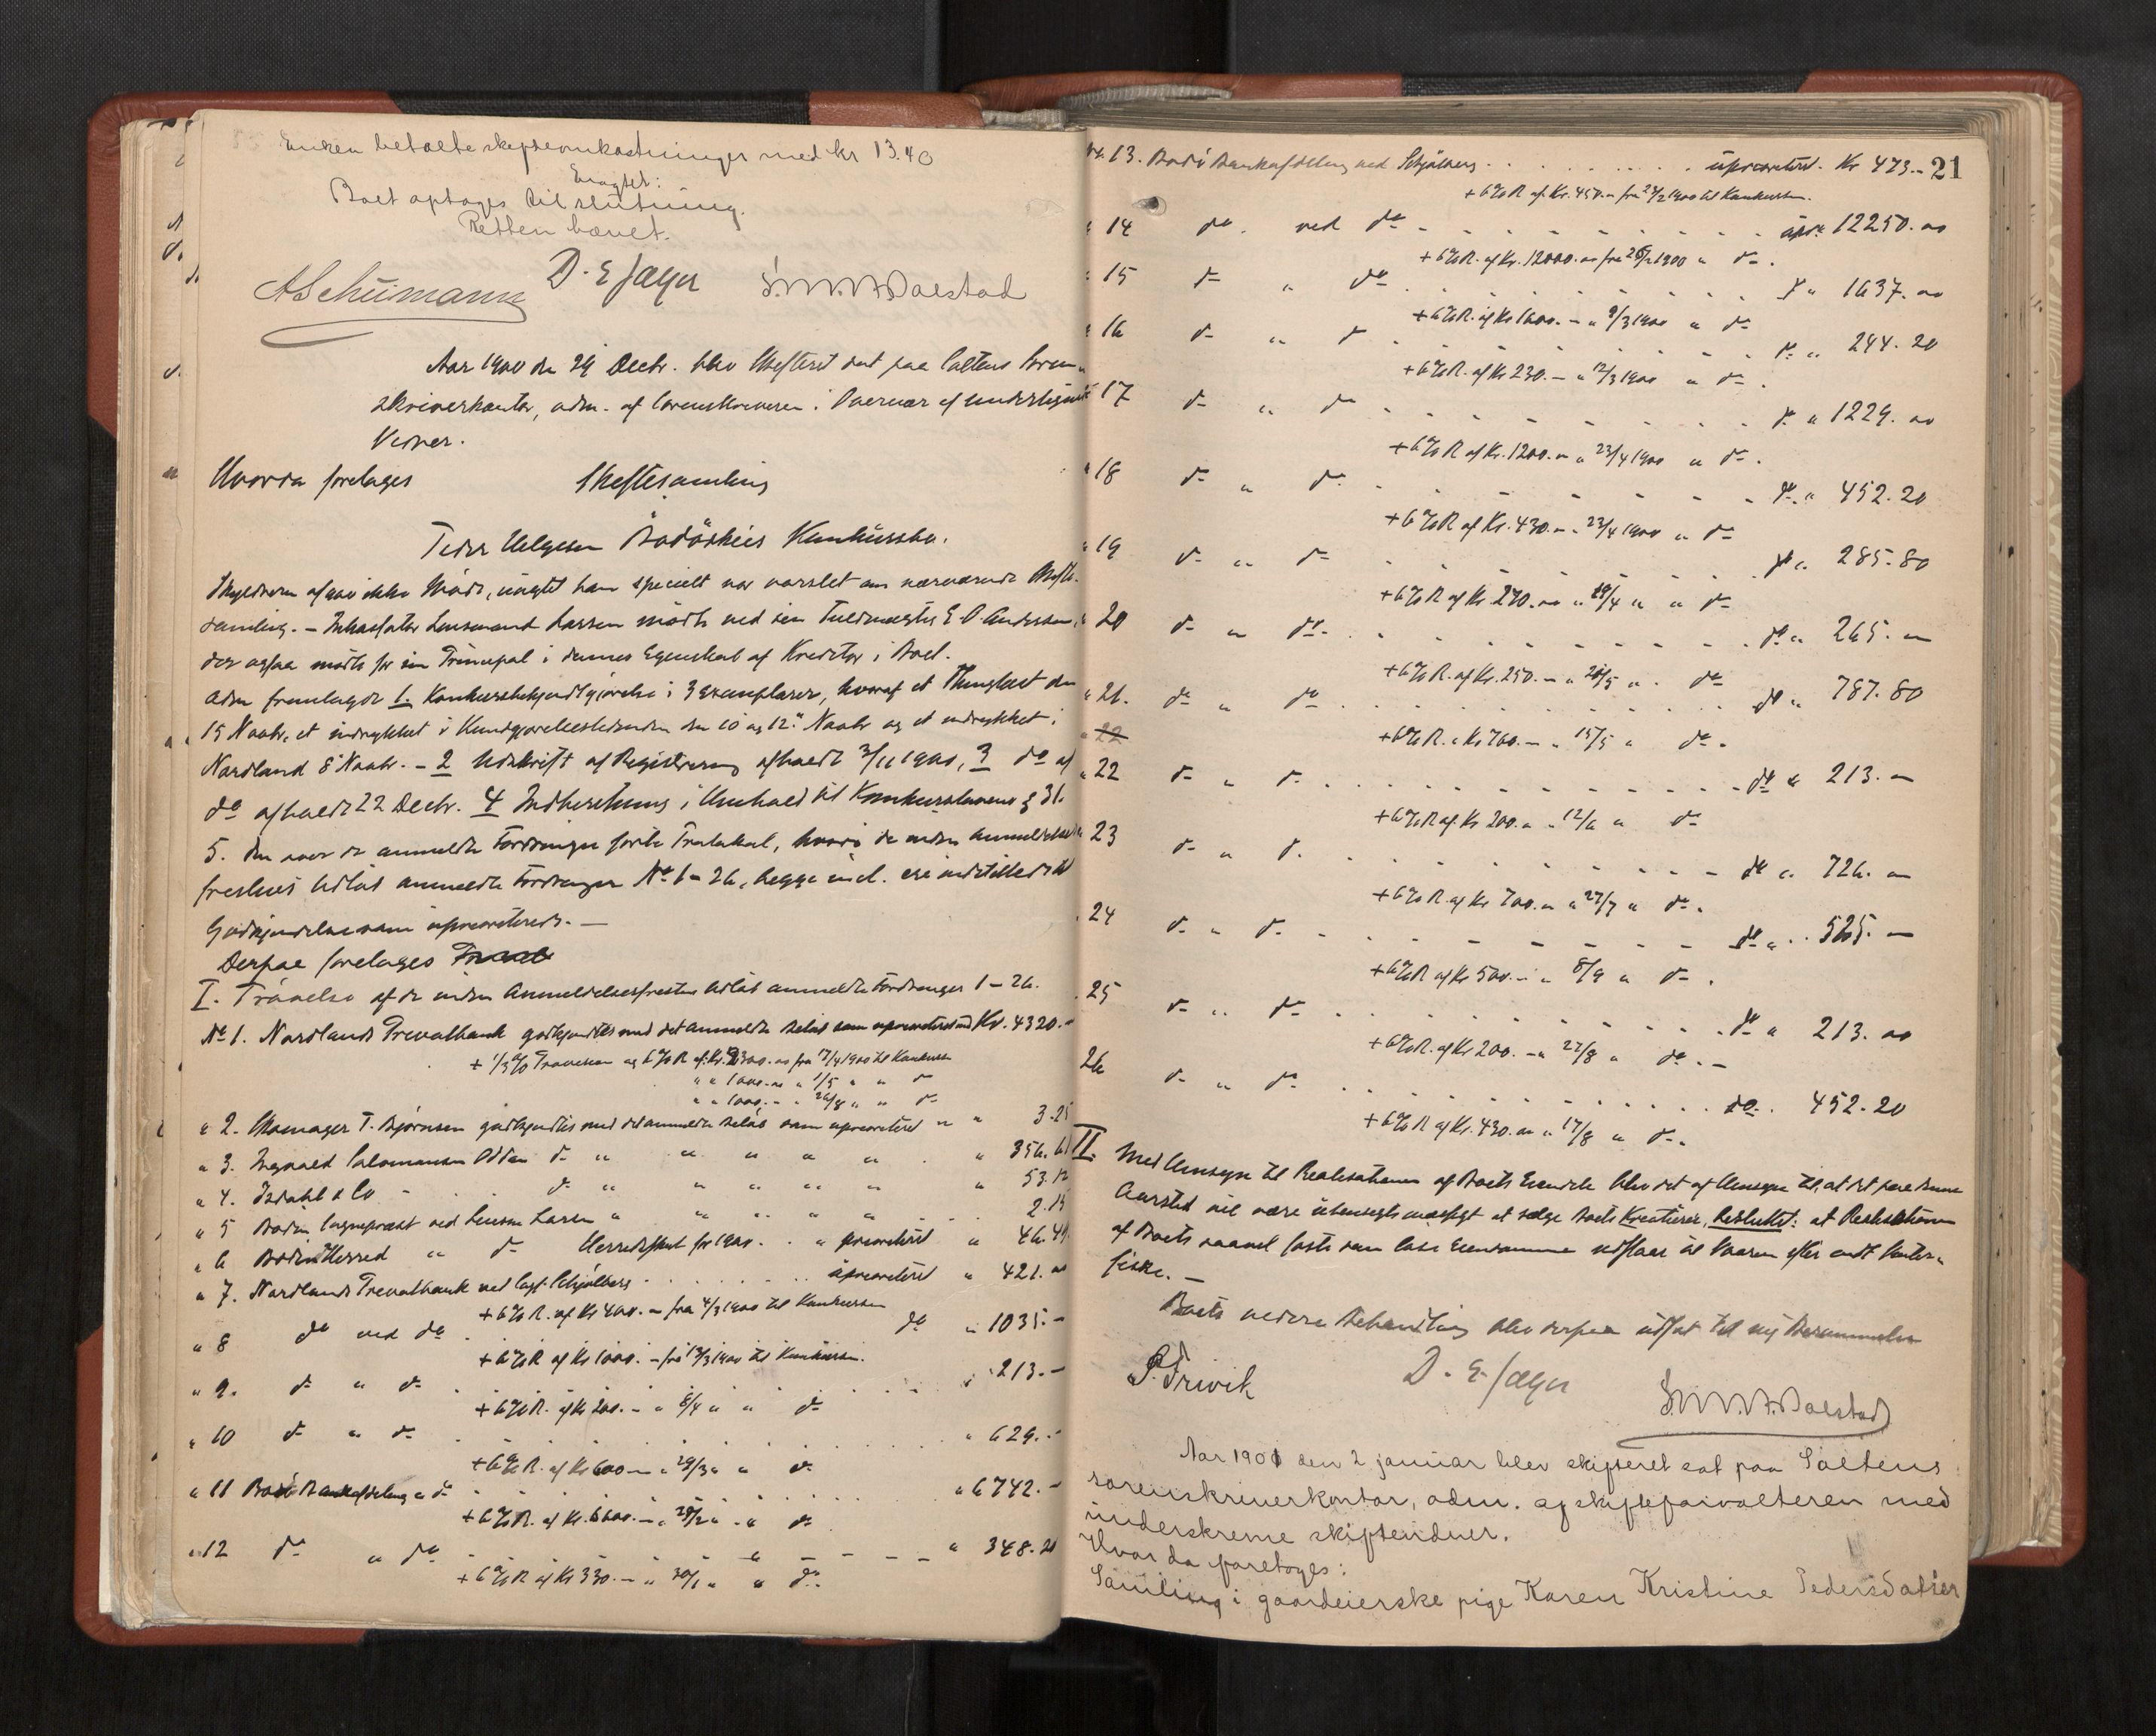 Enken betalte skifteomkostninger med kr 13.40
Eragtet:
Boet optages til slutning.
Retten hævet.
A Schumann D. E Jæger S.M.N.Dalestad
Aar 1900 den 29 Decbr. blev Skifteret sat paa Saltens Soren-
skriverkontor, adm. af Sorenskriveren i Overvær af undertegnede
Vidner.
Hvorda foretages Skiftesamling
Peder Helgesen Bodösköis Konkursbo.
Skyldneren afgav ikke Möde, uagtet han specielt var varslet om nærværende Skifte-
samling. – Inkassator Lensmand Larsen mödte ved sin Fuldmægtig E O. Andersen,
der ogsaa mödte for sin Principal i dennes Egenskab af Kreditor i Boet.
Adm fremlagde 1. Konkursbekjendtgjörelse i 3 Exemplarer, hvoraf et Thinglæst den
15 Novbr, et indrykket i Kundgjørelsestidenden den 10 og 12. Novbr og et indrykket i
Nordland 8 Novbr. – 2 Udskrift af Registrering afholdt 3/11 1900, 3 do af
do afholdt 22 Decbr. 4 Indberetning i Henhold til Konkurslovens § 31.
5. den over de anmeldte Fordringer førte Protokol, hvori de inden Anmeldelses
fristens Udløb anmeldte Fordringer No 1 – 26, begge incl. ere indstillede til
Godkjendelse som uprioriterede. –
Derpaa foretages
I. Prövelse af de inden Anmeldelsesfristens Udløb anmeldte Fordringer 1 – 26.
No 1. Nordlands Privatbank godkjendtes med det anmeldte Beløb som uprioriteret med Kr. 4320.–
+ 1/3 % Provision og 6 % R. af Kr. 2300.00 fra 17/4 1900 til Konkursen
" " 1000.00 " 1/5 " " do
" " 1000.– " 26/8 " " do
" 2. Skomager T. Bjørnsen godkjendtes med det anmeldte Beløb som uprioriteret " " 3.25
" 3. Ingvald Salomonsen Odden do " " " " " . " 356.61
" 4. Isdahl & Co – . do " " " " " " 53.12
" 5 Bodin Sogneprest ved Lensm Larsen " " " " " . . 2.15
" 6 Bodin Herred " do Herredsskat for 1900 . . " prioriteret " 46.41
" 7. Nordlands Privatbank ved Sagf. Schjölberg . . . . . . . uprioriteret " 421.00
+ 6 % R. af Kr 400.– fra 4/3 1900 til Konkursen
" 8 do ved do . do " 1035.–
+ 6 % R af Kr 1000. – fra 13/3 1900 til Konkursen.
" 9. do " do . . . . . 213.–
+ 6 % R. af Kr 200. – " 6/4 " " do
" 10 do " do . . . . . " 629.–
+ 6 % R. af Kr 600 – " 29/3 " " do
" 11 Bodö Bankafdeling " do . . . . " 6742.–
+ 6 % R. af Kr. 6600. – " 28/2 " " do
" 12 do " do – – – – " 348.20
+ 6 % R af Kr 330. – " 30/1 " " do.
No. 13. Bodö Bankafdeling ved Schjölberg . . . . . . . . uprioriteret. Kr 473.– 21
+ 6 % R af Kr. 450.– fra 24/2 1900 til Konkursen.
" 14 do. ved do – . . . . . . . . upr. 12250.00
+ 6 % R. af Kr. 12000.00 fra 26/2 1900 " do.
" 15 do " do . . . . . . . do " 1637.00
+ 6 % R. af Kr 1600. – " 9/3 1900 " do
" 16 do " do . . . . . . . do " 244.20
+ 6 % R. af Kr 230. – " 12/3 1900 " do.
" 17 do " do . . . . . . . do " 1229.00
+ 6 % R af Kr. 1200.– " 23/4 1900 " do.
" 18 do " do . . . . . . . do " 452.20
+ 6 % R af Kr. 430.– " 23/4 1900 " do
" 19 do " do . . . . . . . do " 285.80
+ 6 % R af Kr. 270.00 " 29/4 " " do
" 20 do " do . . . . . . . do " 265.–
+ 6 % R. af Kr. 250.– " 26/5 " . do
" 21. do " do . . . . . . . do " 787.80
+ 6 % R. " Kr 760.– " 15/5 " do.
" 22
" 22 do " do . . . . . . . do " 213.–
+ 6 % R af. Kr 200. " 12/6 " do
" 23 do " do. . . . . . . . do " 726.–
+ 6 % R. af Kr 700.– " 27/7 " do.
. 24 do " do . . . . . . . do " . . 525.–
+ 6 % R af Kr 500. – " 8/9 " do.
. 25 do " do . . . . . . . do " 213.00
+ 6 % R. af Kr 200. – " 27/8 " do. –
26 do " do . . . . . . . do . 452.20
+ 6 % R af Kr. 430.00 " 17/8 " do.
II. Med Hensyn til Realisationen af Boets Eiendele blev det af Hensyn til, at det paa denne
Aarstid vil være uhensigtsmæssigt at sælge Boets Kreaturer, besluttet: at Realisationen
af Boets saavel faste som løse Eiendomme udstaar til Vaaren efter endt Vinter-
fiske. –
Boets videre Behandling blev derpaa udsat til ny Berammelse
P. Trivik D. E. Jæger S.M.N.Dalestad
Aar 1901 den 2 januar blev skifteret sat paa Saltens
sorenskriverkontor, adm. af skifteforvalteren med
underskrevne skiftevidner.
Hvor da foretoges:
Samling i gaardeierske pige Karen Kristine Pedersdatter